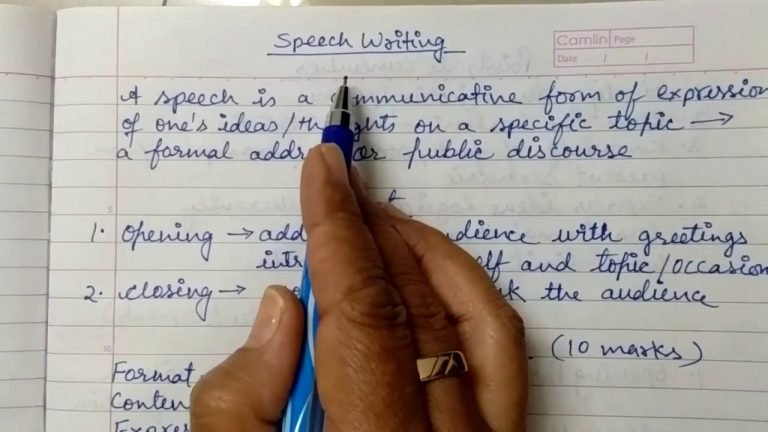 Speech Writing
Camlin Page
Date / /
A speech is a communicative form of expression
of one's ideas/thoughts on a specific topic →
a formal address or public discourse
1. Opening → audience with greetings
and topic/occasion
2. Closing → the audience
(10 marks)
Format